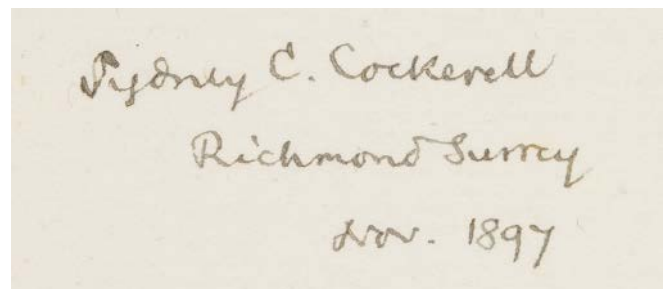 Sydney C. Cockerell
Richmond Surrey
Nov. 1897